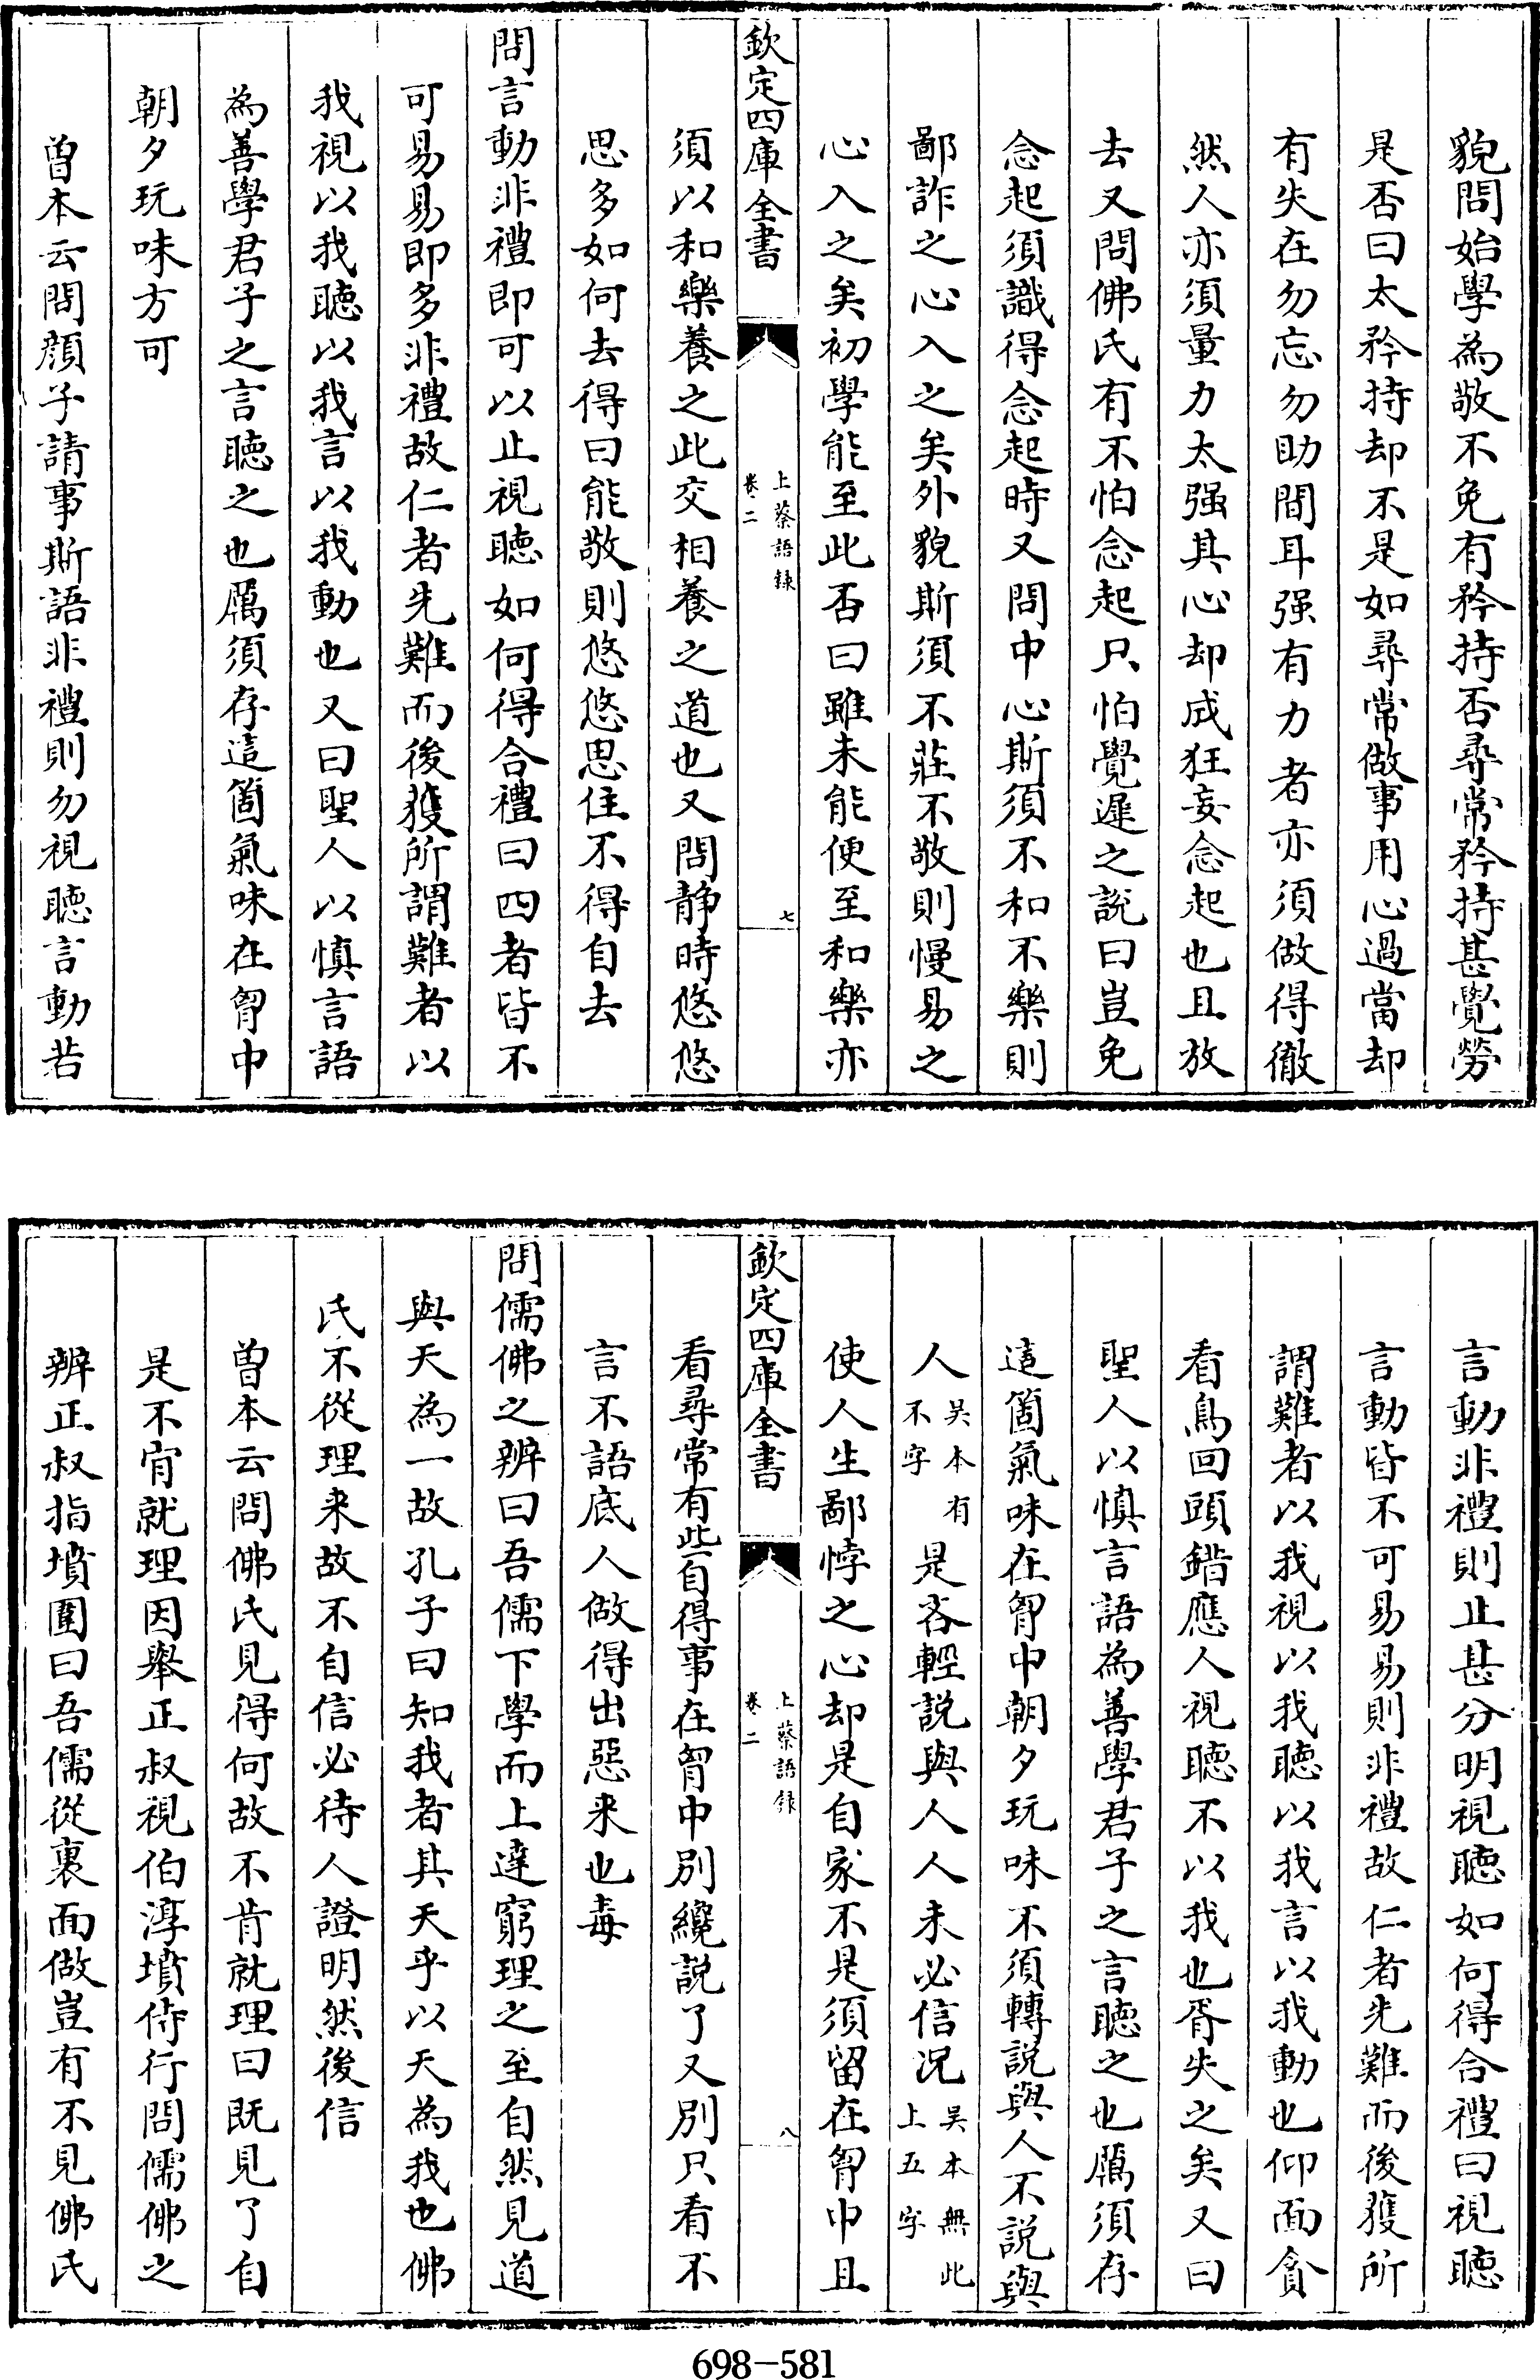 貌問始學為敬不免有矜持否尋常矜持甚覺勞
是否曰太矜持却不是如尋常做事用心過當却
有失在勿忘勿助間耳强有力者亦須做得徹
然人亦須量力太强其心却成狂妄念起也且放
去又問佛氏有不怕念起只怕覺遲之說曰豈免
念起須識得念起時又問中心斯須不和不樂則
鄙詐之心入之矣外貌斯須不莊不敬則慢易之
心入之矣初學能至此否曰雖未能便至和樂亦
欽定四庫全書
上蔡語録
卷二
七
須以和樂養之此交相養之道也又問静時悠悠
思多如何去得曰能敬則悠悠思住不得自去
問言動非禮即可以止視聽如何得合禮曰四者皆不
可易易即多非禮故仁者先難而後獲所謂難者以
我視以我聽以我言以我動也又曰聖人以慎言語
為善學君子之言聽之也厲須存這箇氣味在胷中
朝夕玩味方可
曾本云問顔子請事斯語非禮則勿視聽言動若
言動非禮則止甚分明視聽如何得合禮曰視聽
言動皆不可易易則非禮故仁者先難而後獲所
謂難者以我視以我聽以我言以我動也仰面貪
看鳥回頭錯應人視聽不以我也胥失之矣又曰
聖人以慎言語為善學君子之言聽之也厲須存
這箇氣味在胷中朝夕玩味不須轉說與人不說與
人吴本有不字是吝輕説與人人未必信况吴本無此上五字
使人生鄙悖之心却是自家不是須留在胷中且
欽定四庫全書
上蔡語録
卷二
八
看尋常有些自得事在胷中別纔説了又別只看不
言不語底人做得出惡来也毒
問儒佛之辨曰吾儒下學而上達窮理之至自然見道
與天為一故孔子曰知我者其天乎以天為我也佛
氏不從理来故不自信必待人證明然後信
曾本云問佛氏見得何故不肯就理曰既見了自
是不肯就理因舉正叔視伯淳墳侍行問儒佛之
辨正叔指墳圍曰吾儒從裏面做豈有不見佛氏
698-581